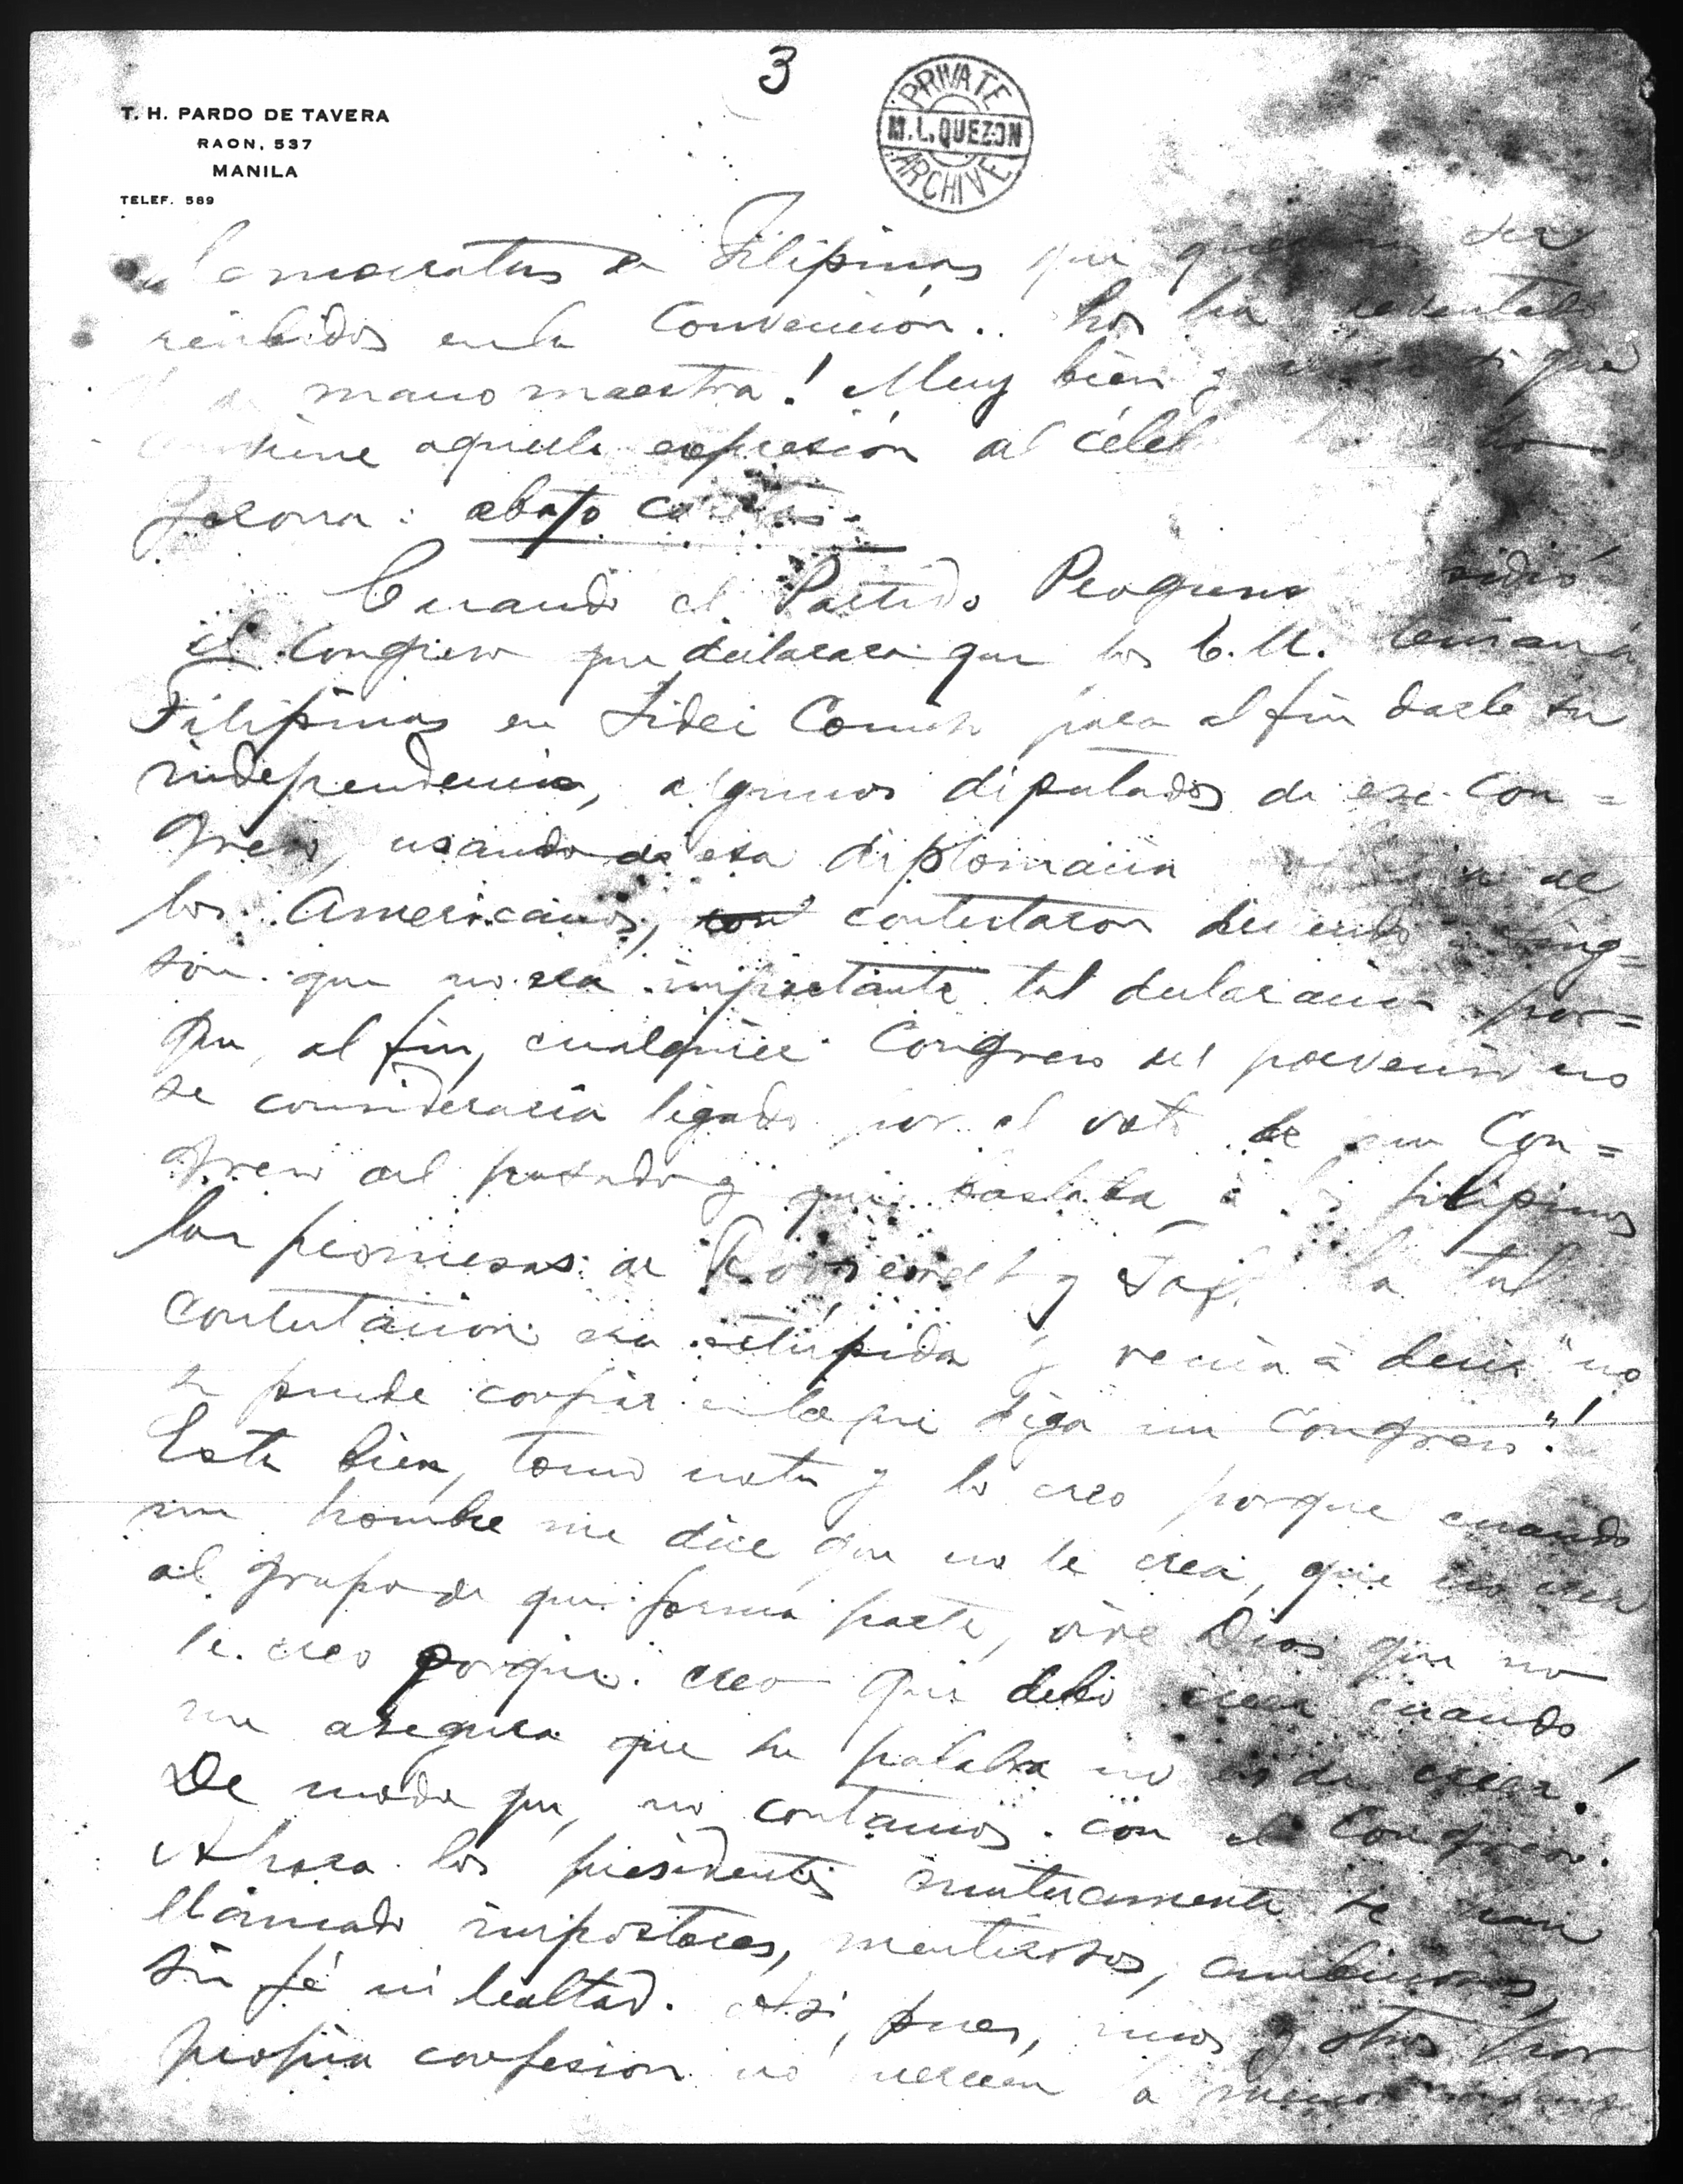 3
PRIVATE
M. L. QUEZON
ARCHIVE
T. H. PARDO DE TAVERA
RAON, 537
MANILA
TELEF. 589
democratas de Filipinas que ser
recibidos en la Convención. Los ha reventado
mano maestra! Muy bien y que
aquella expresión al
abajo
Cuando el Partido pidió
al Congreso que declarara que los E.U. tenian á
Filipinas en Fidei Comiso para al fin darle su
independencia, algunos diputados de ese Con=
greso, usando de esa diplomacia de
los Americanos, contestaron diciendo
que no era importante tal declaracion por=
que, al fin, cualquier Congreso del porvenir no
se consideraria ligado por el voto de un Con=
greso del pasado y que bastaba á los filipinos
las promesas de Roosevelt y Taft. La tal
contestacion era estúpida y venia á decir "no
se puede confiar en lo que diga un Congreso"!
Está bien, tomo nota y lo creo porque cuando
un hombre me dice que no le crea, que no crea
al grupo de que forma parte, vive Dios que no
le creo porque creo que debo creer cuando
me asegura que su palabra no es de creer!
De modo que, no contamos con el Congreso.
Ahora los presidentes mutuamente se han
llamado impostores, mentirosos, ambiciosos,
sin fé ni lealtad. Asi, pues, unos y otros por
propia confesion no merecen la menor